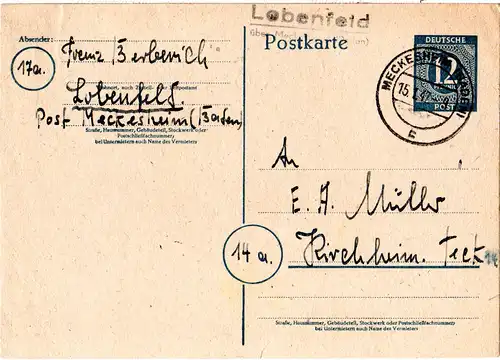 Absender:
17a.
Franz Berberich
Wohnort, auch Zustell- oder Leitpostamt
Lobenfeld.
Post Meckesheim (Baden)
Straße, Hausnummer, Gebäudeteil, Stockwerk oder
Postschließfachnummer;
bei Untermietern auch Name des Vermieters
Lobenfeld
über
Postkarte
DEUTSCHE
12
POST
MECKESHEIM
15
E
An
E. A. Müller
14a.
Kirchheim. Teck
14
Straße, Hausnummer, Gebäudeteil, Stockwerk oder Postschließfachnummer;
bei Untermietern auch Name des Vermieters